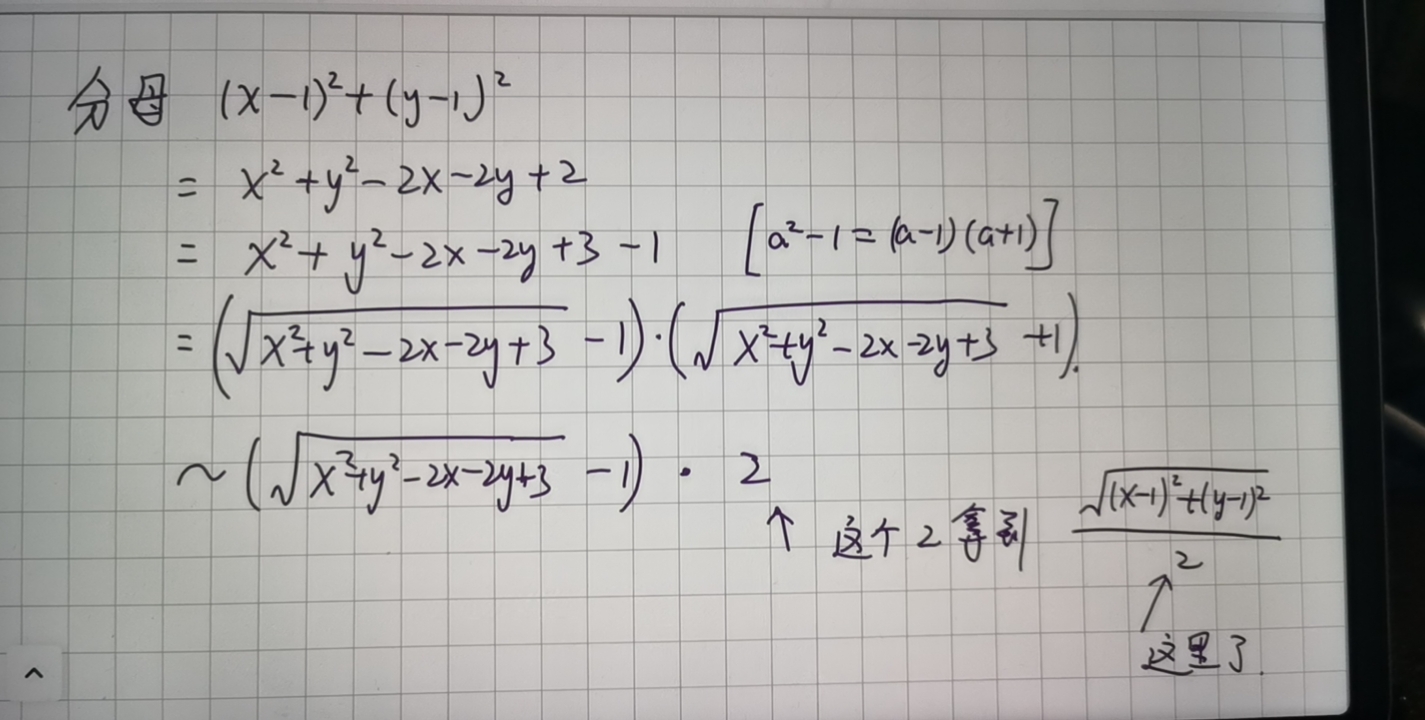 分母 (x-1)²+(y-1)²
= x²+y²-2x-2y+2
= x²+y²-2x-2y+3-1 [a²-1=(a-1)(a+1)]
=(√(x²+y²-2x-2y+3) -1)·(√(x²+y²-2x-2y+3) +1).
~(√(x²+y²-2x-2y+3) -1)·2
↑ 这个2拿到 √((x-1)²+(y-1)²)/2
↑
这里了.